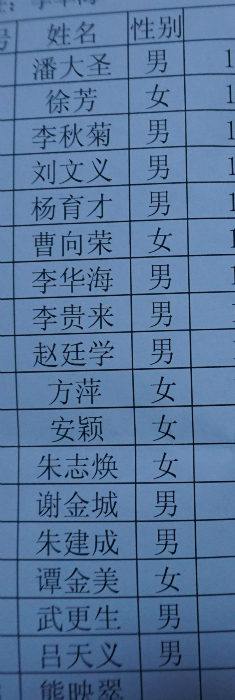 号 姓名 性别
潘大圣 男 1
徐芳 女 1
李秋菊 男 1
刘文义 男 1
杨育才 男 1
曹向荣 女 1
李华海 男 1
李贵来 男
赵廷学 男
方萍 女
安颖 女
朱志焕 女
谢金城 男
朱建成 男
谭金美 女
武更生 男
吕天义 男
熊映翠